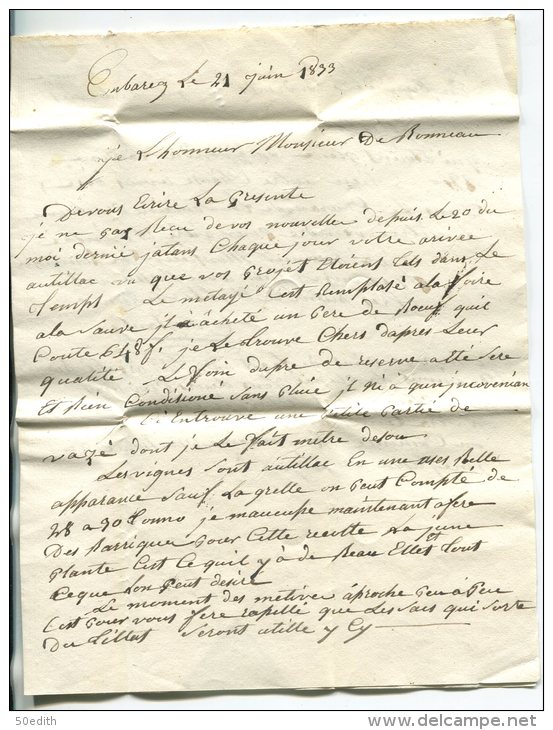 Cubareg Le 21 juin 1833
j'e Lhonneur Monsieur De Bonneau
De vous Ecrire La presente
je ne pas Recu de vos nouvelle depuis Le 20 du
moi dernié jatans Chaque jour votre arivée
autillac vu que vos projet Etoient tels dans Le
temps Le metayé C'est Remplasé a la foire
a la Sauve il a acheté un pere de Boeuf quil
Coute 648 f. je Le trouve Chers dapres Leur
qualité Le foin du pre de reserve a été sere
Et Bien Condisioné Sans pluie il ni a qu'un inconvenian
Ci Entrouve une petite Partie de
vazé dont je Le fait metre desou
Les vignes sont autillac En une ases Belle
apparance Sauf La grelle on peut Compté de
28 a 30 tonno je maucupe maintenant a fere
Des Barrique pour Cette recolte La jeune
plante C'est Ce quil y à de Beau Ellet tout
Ceque Lon peut desiré
Le moment des metives aproche peu a peu
C'est pour vous fere rapellé que Les Sacs qui sorte
Du tillat Seront utille y Cy
50edith
www.delcampe.net